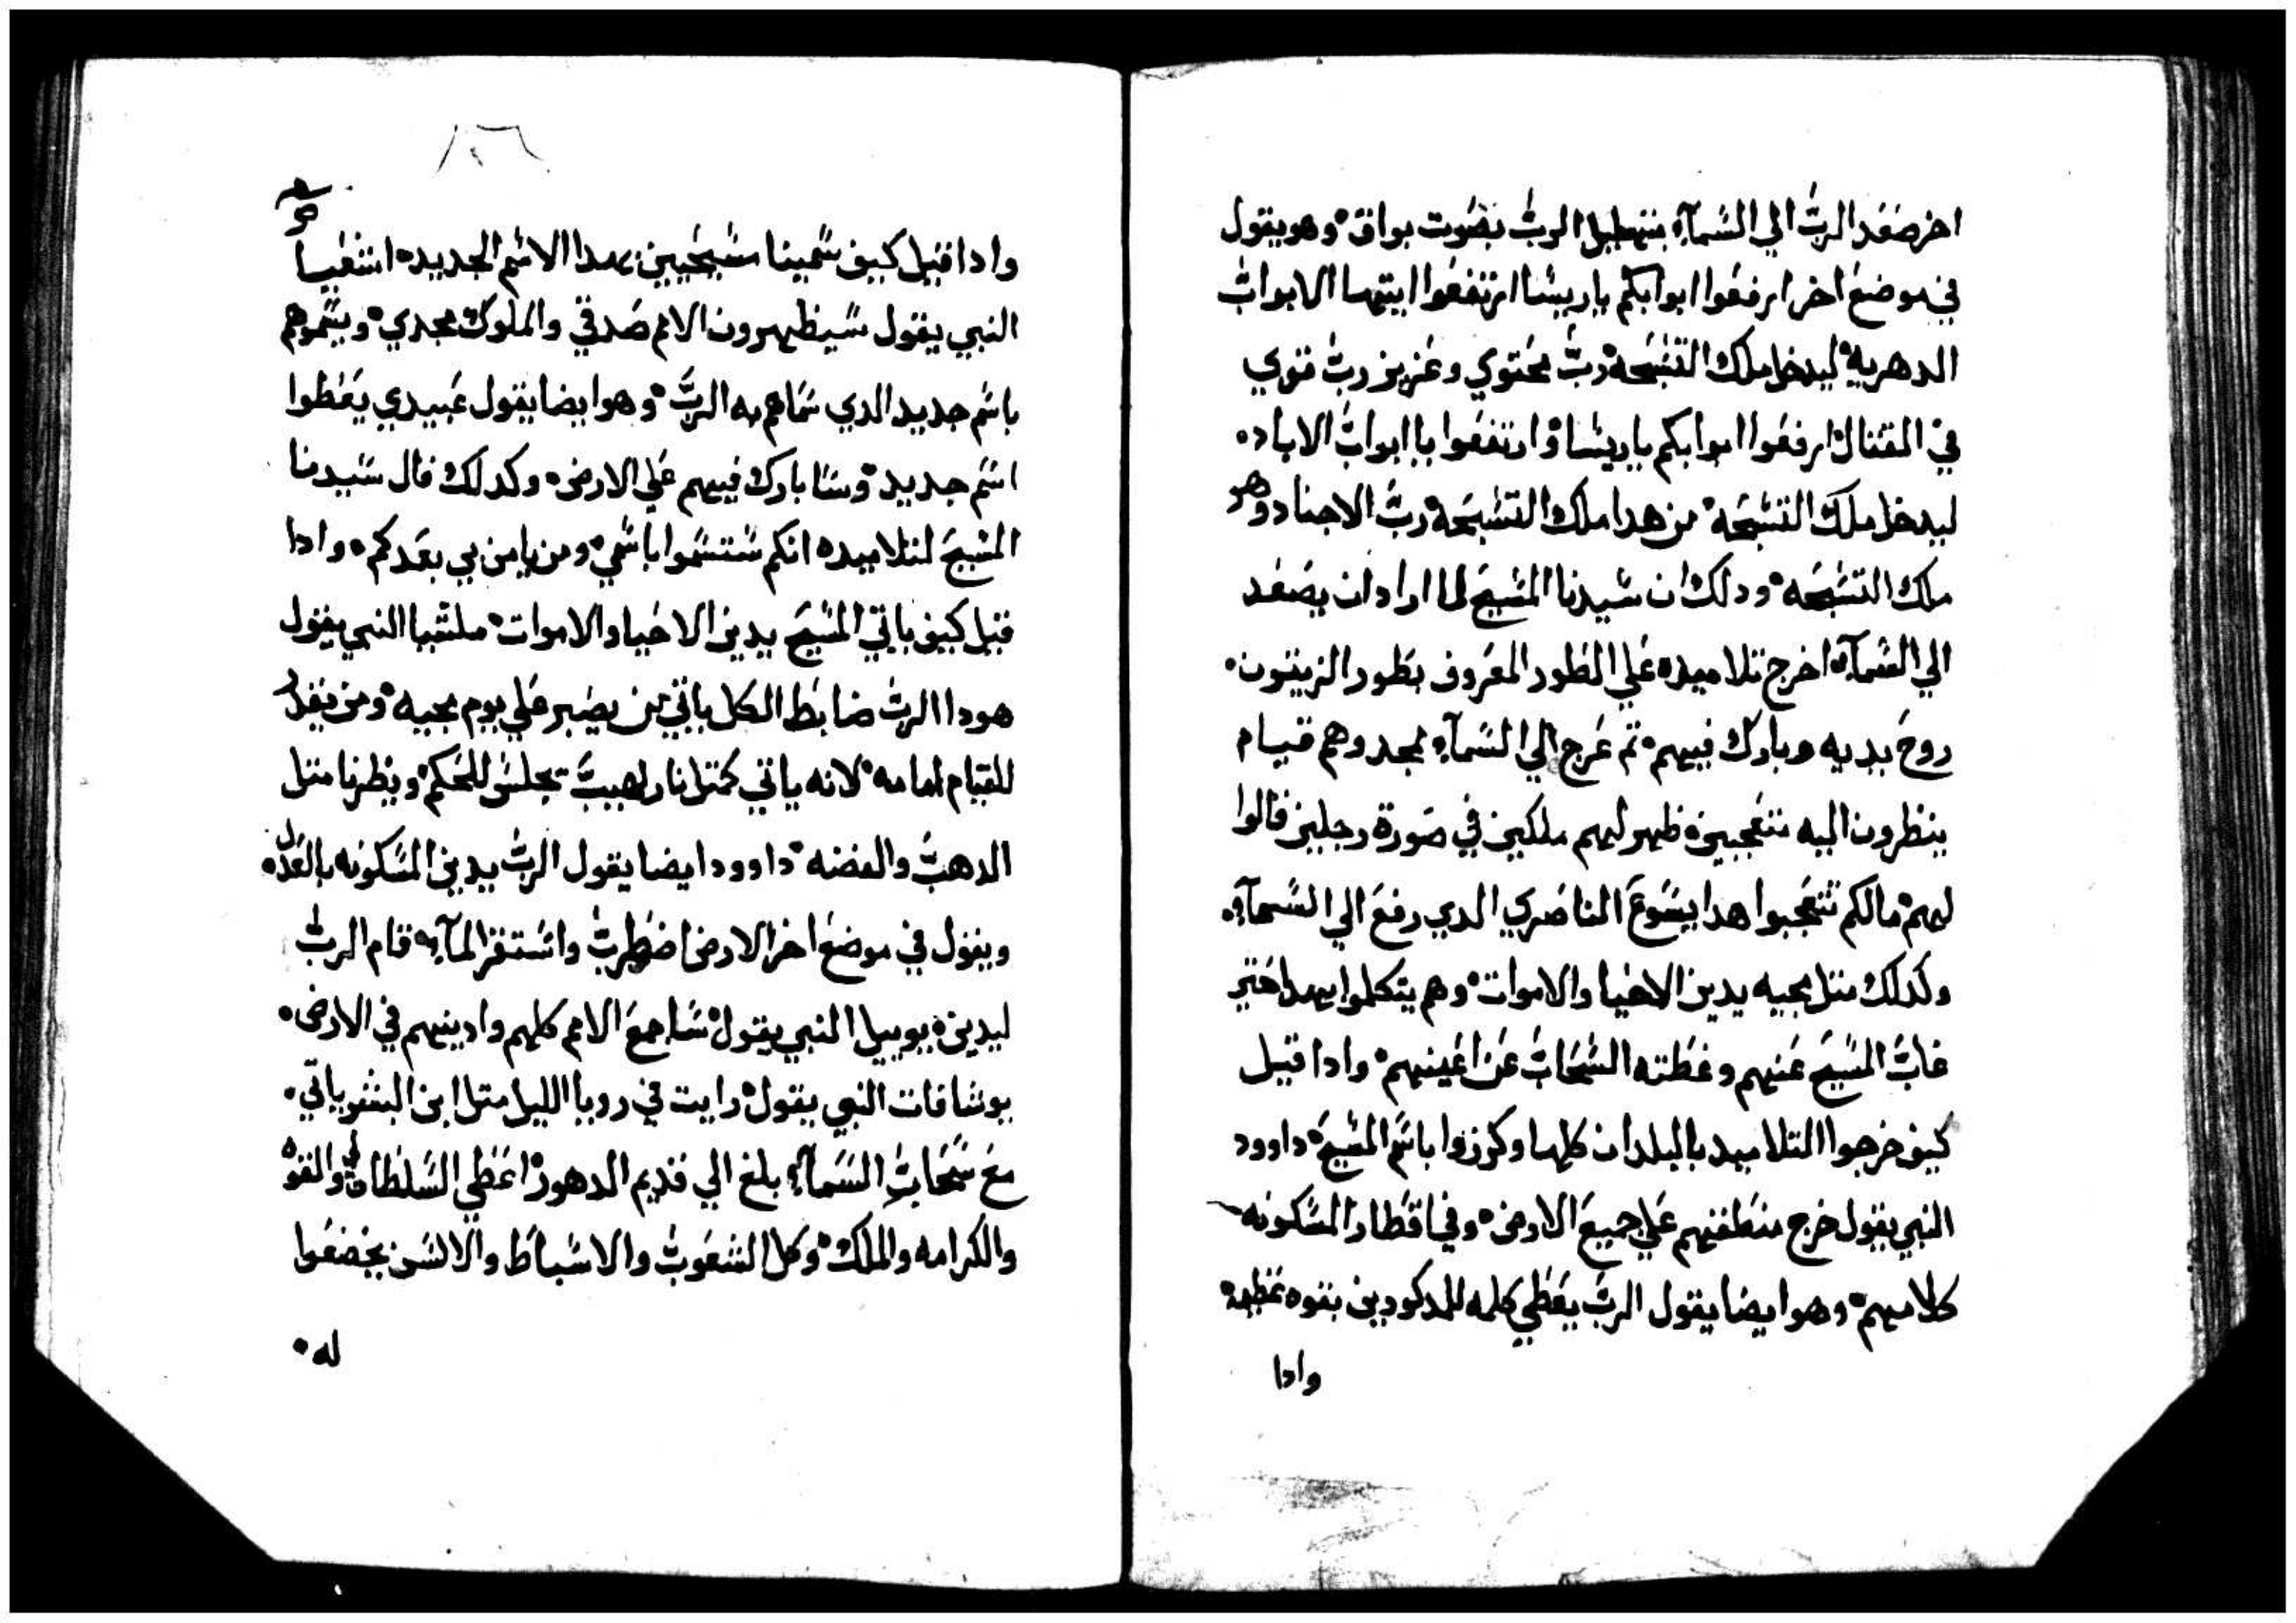 اخر صعد الرب الي السمآء بتهليل الرب بصوت بوافق وهو يقول
في موضع اخر ارفعوا ابوابكم ياريسا ارتفعوا ايتها الابواب
الدهريه ليدخل ملك التسبحه رب محتوي وعزيز رب قوي
في القتال ارفعوا ابوابكم ياريسا وارتفعوا يا ابواب الاباد
ليدخل ملك التسبحه من هدا ملك التسبحه رب الاجناد وهو
ملك التسبحه ودلك ان سيدنا المسيح لما اراد ان يصعد
الي السمآء اخرج تلاميده علي الطور المعروف بطور الزيتون
روح يديه وبارك فيهم تم عرج الي السمآء بمجد وهم قيام
ينظرون اليه متعجبين ظهر لهم ملكين في صورة رجلين قالوا
لهم مالكم تتعجبوا هدا يسوع الناصري الدي رفع الي السمآء
وكدلك متل مجيه يدين الاحيا والاموات وهم يتكلموا بهدا حتي
غاب المسيح عنهم وغطته السحاب عن اعينهم وادا قيل
كيف خرجوا التلاميد بالبلدان كلها وكرزوا باسم المسيح داوود
النبي يقول خرج منطقهم علي جميع الارض وفي اقطار المسكونه
كلامهم وهو ايضا يقول الرب يعطي كلمه للمدكورين بقوه عظيمه
وادا
وادا قيل كيف سمينا مسيحيين بهدا الاسم الجديد اشعيا
النبي يقول سيظهرون الامم صدقي والملوك مجدي ويسموهم
باسم جديد الدي سماهم به الرب وهو ايضا يقول عبيدي يعطوا
اسم جديد وسابارك فيهم علي الارض وكدلك قال سيدنا
المسيح لتلاميده انكم ستسموا باسمي ومن يامن بي بعدكم وادا
قيل كيف ياتي المسيح يدين الاحيا والاموات ملشيا النبي يقول
هودا الرب ضابط الكل ياتي من يصبر علي يوم مجيه ومن يقدر
للقيام امامه لانه ياتي كمتل نار لهيب يجلس للحكم وينظرنا متل
الدهب والفضه داوود ايضا يقول الرب يدين المسكونه بالعدل
ويقول في موضع اخر الارض اضطربت واستقر المآء قام الرب
ليدين يوييل النبي يقول ساجمع الامم كلهم وادينهم في الارض
يوشافات النبي يقول رايت في رويا الليل متل ابن البشر ياتي
مع سحاب السمآء بلغ الي قديم الدهور اعطي السلطان والقوه
والكرامه والملك وكل الشعوب والاسباط والالسن يخضعوا
له